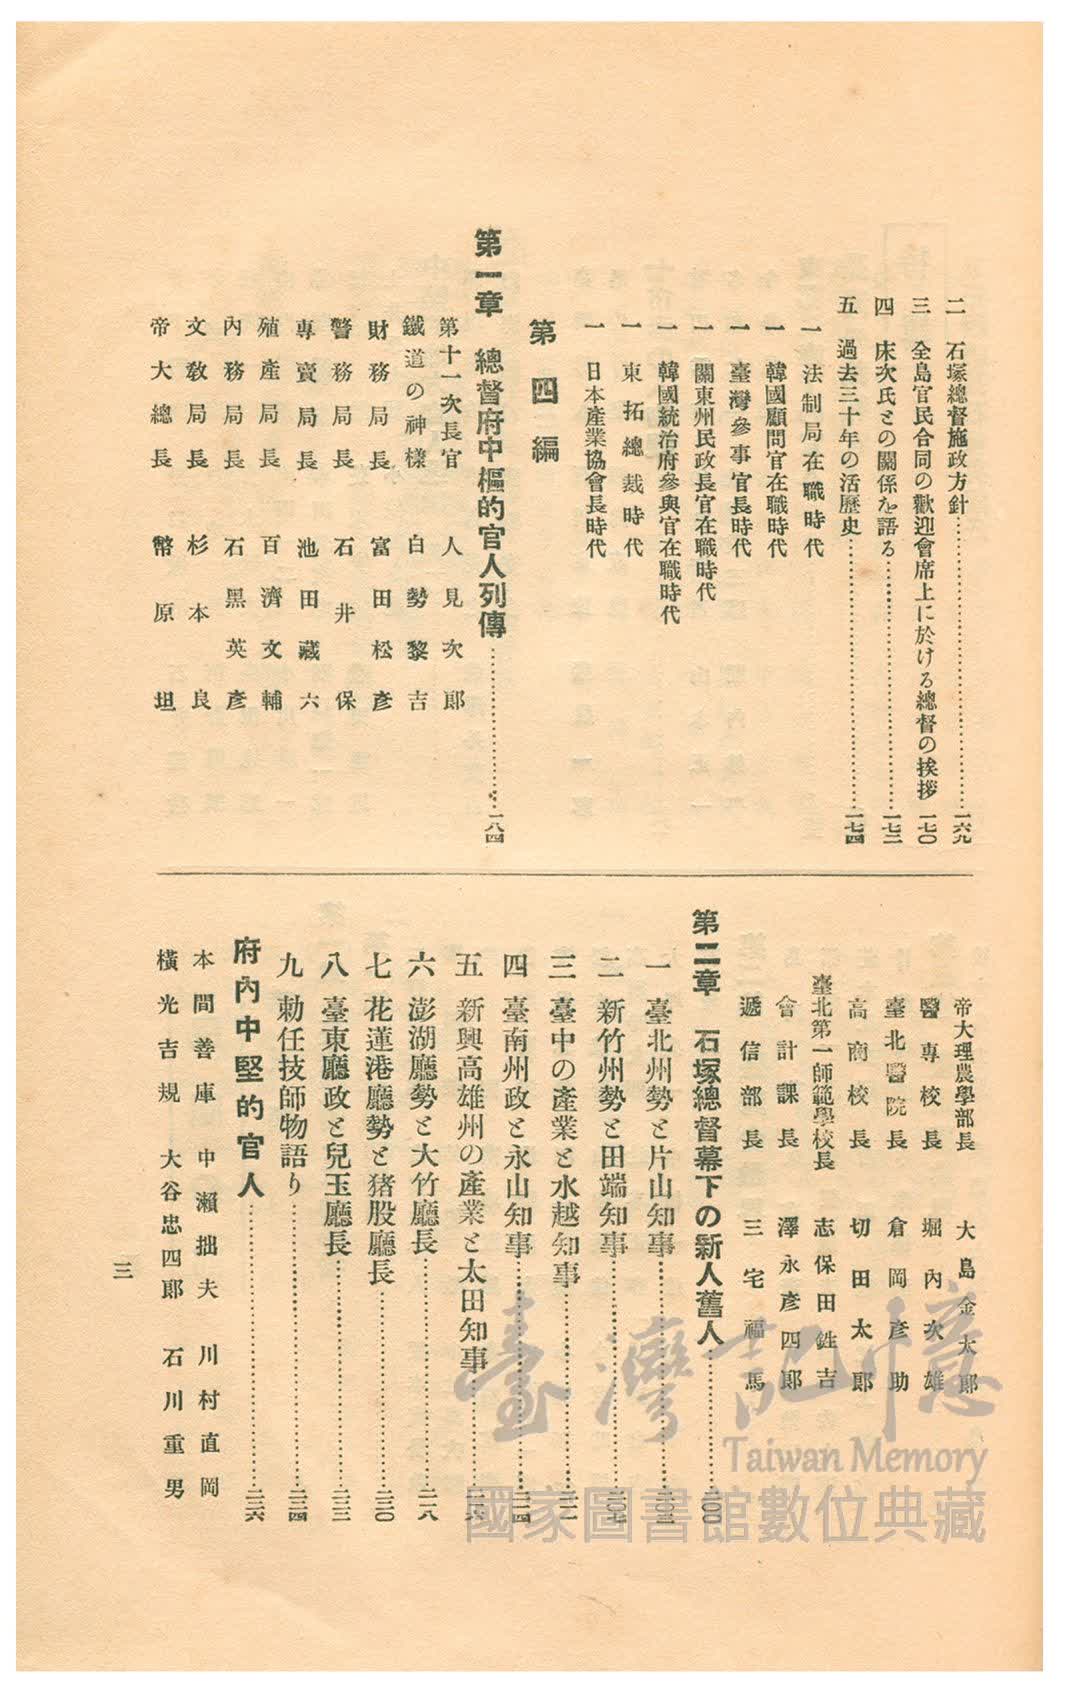 二　石塚總督施政方針……一六九
三　全島官民合同の歡迎會席上に於ける總督の挨拶　一七〇
四　床次氏との關係を語る……一七三
五　過去三十年の活歷史……一七四
一　法制局在職時代
一　韓國顧問官在職時代
一　臺灣參事官長時代
一　關東州民政長官在職時代
一　韓國統治府參與官在職時代
一　東拓總裁時代
一　日本產業協會長時代
第四編
第一章　總督府中樞的官人列傳……一八四
第十一次長官　人見次郎
鐵道の神樣　白勢黎吉
財務局長　富田松彥
警務局長　石井保
專賣局長　池田藏六
殖產局長　百濟文輔
內務局長　石黑英彥
文敎局長　杉本良
帝大總長　幣原坦
帝大理農學部長　大島金太郎
醫專校長　堀內次雄
臺北醫院長　倉岡彥助
高商校長　切田太郎
臺北第一師範學校長　志保田鉎吉
會計課長　澤永彥四郎
遞信部長　三宅福馬
第二章　石塚總督幕下の新人舊人……二〇〇
一　臺北州勢と片山知事……二〇三
二　新竹州勢と田端知事……二〇七
三　臺中の產業と水越知事……二一一
四　臺南州政と永山知事……二一四
五　新興高雄州の產業と太田知事……二一六
六　澎湖廳勢と大竹廳長……二一八
七　花蓮港廳勢と猪股廳長……二二〇
八　臺東廳政と兒玉廳長……二二二
九　勅任技師物語り……二二四
府內中堅的官人……二三六
本間善庫　中瀨拙夫　川村直岡
橫光吉規　大谷忠四郎　石川重男
三
臺灣記憶
Taiwan Memory
國家圖書館數位典藏